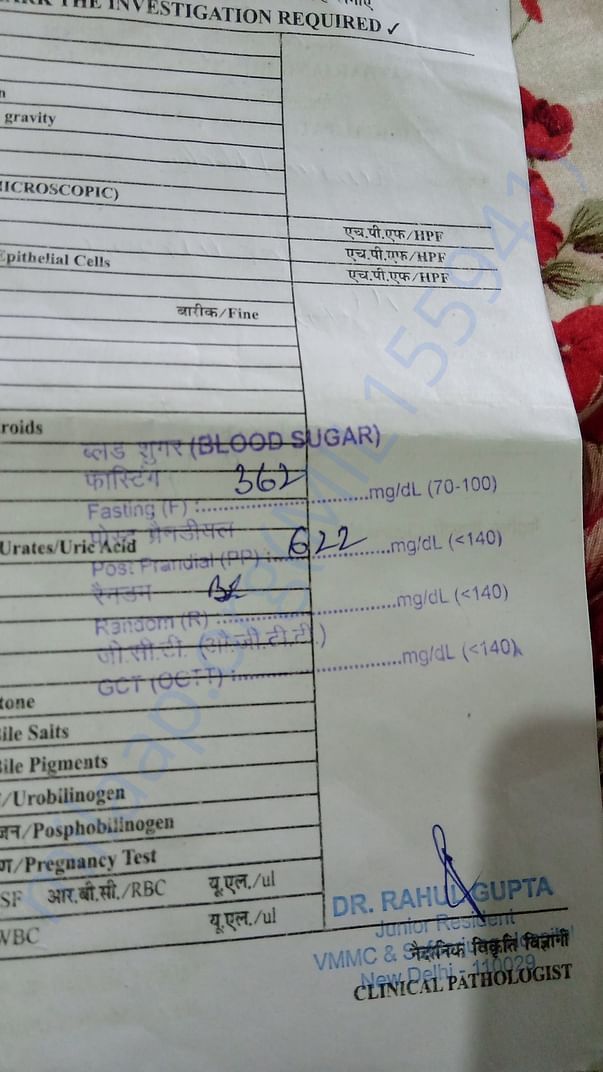 THE INVESTIGATION REQUIRED ✓
gravity
MICROSCOPIC)
एच.पी.एफ/HPF
Epithelial Cells एच.पी.एफ/HPF
एच.पी.एफ/HPF
बारीक/Fine
roids
ब्लड शुगर (BLOOD SUGAR)
फास्टिंग 362
Fasting (F) :..............................mg/dL (70-100)
पोस्ट प्रैनडीयल
Urates/Uric Acid
Post Prandial (PP) : 622 ..........mg/dL (<140)
रैनडम
Random (R) :..............................mg/dL (<140)
जी.सी.टी. (ओ.जी.टी.टी.)
GCT (OGTT) :..............................mg/dL (<140)
tone
ile Salts
ile Pigments
/Urobilinogen
जन/Posphobilinogen
ण/Pregnancy Test
SF आर.बी.सी./RBC यू.एल./ul
WBC यू.एल./ul
DR. RAHUL GUPTA
Junior Resident
VMMC &
नैदानिक विकृति विज्ञानी
New Delhi - 110029
CLINICAL PATHOLOGIST